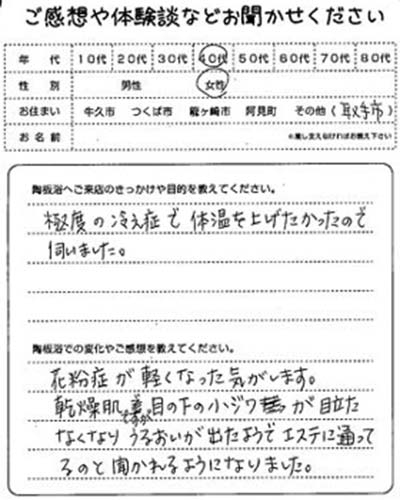 ご感想や体験談などお聞かせください
年代 10代 20代 30代 40代 50代 60代 70代 80代
性別 男性 女性
お住まい 牛久市 つくば市 龍ヶ崎市 阿見町 その他（取手市）
お名前 ※差し支えなければお教え下さい
陶板浴へご来店のきっかけや目的を教えてください。
極度の冷え症で体温を上げたかったので
伺いました。
陶板浴での変化やご感想を教えてください。
花粉症が軽くなった気がします。
乾燥肌ですが目の下の小ジワが目立た
なくなりうるおいが出たようでエステに通って
るのと聞かれるようになりました。